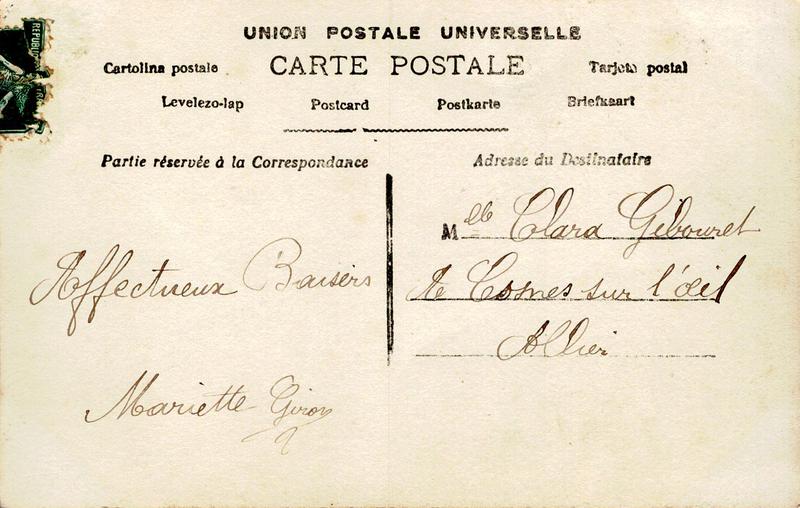 UNION POSTALE UNIVERSELLE
CARTE POSTALE
Cartolina postale
Tarjeta postal
Levelezo-lap
Postcard
Postkarte
Briefkaart
Partie réservée à la Correspondance
Affectueux Baisers
Mariette Giron
Adresse du Destinataire
Mlle Clara Gibouret
A Cosnes sur l'œil
Allier
REPUBLIQUE